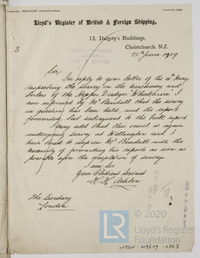 Lloyd's Register of British & Foreign Shipping,
13, Dalgety's Buildings,
Christchurch, N.Z.
25th June 1909
Sir,
In reply to your letter of the 10th May
respecting the survey on the machinery and
boiler of the Hopper Dredger "Whakarire" I
am informed by Mr Bendall that the survey
in question has been held, and the report
forwarded, but subsequent to the full report
I may add that this vessel is again
undergoing survey at Wellington and I
have to inspire Mr Bendall with the
necessity of forwarding his reports as soon as
possible after the completion of surveys
I am Sir
Your Obedient Servant
The Secretary
London
© 2020
Lloyd's Register
Foundation